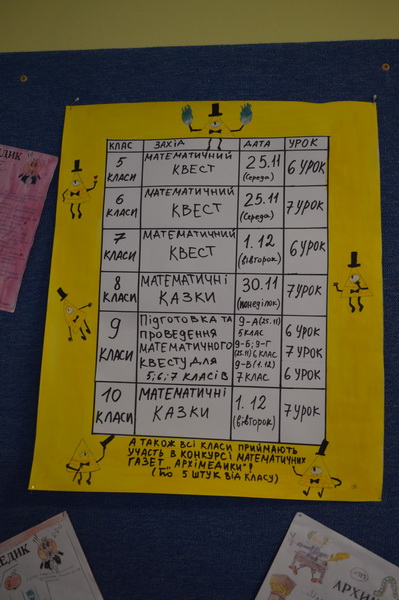 КЛАС ЗАХІД ДАТА УРОК
5 КЛАСИ МАТЕМАТИЧНИЙ КВЕСТ 25.11 (середа) 6 УРОК
6 КЛАСИ МАТЕМАТИЧНИЙ КВЕСТ 25.11 (середа) 7 УРОК
7 КЛАСИ МАТЕМАТИЧНИЙ КВЕСТ 1.12 (вівторок) 6 УРОК
8 КЛАСИ МАТЕМАТИЧНІ КАЗКИ 30.11 (понеділок) 7 УРОК
9 КЛАСИ
Підготовка та
проведення
математичного
квесту для
5; 6; 7 класів
9-А (25.11)
5 клас
9-Б; 9-Г
(25.11) 6 клас
9-В (1.12)
7 клас
6 УРОК
7 УРОК
6 УРОК
10 КЛАСИ МАТЕМАТИЧНІ КАЗКИ 1.12 (вівторок) 7 УРОК
А ТАКОЖ ВСІ КЛАСИ ПРИЙМАЮТЬ
УЧАСТЬ В КОНКУРСІ МАТЕМАТИЧНИХ
ГАЗЕТ „АРХІМЕДИКИ"!
(ПО 5 ШТУК ВІД КЛАСУ)
ЕДИК
ЕДИК
АРХІ